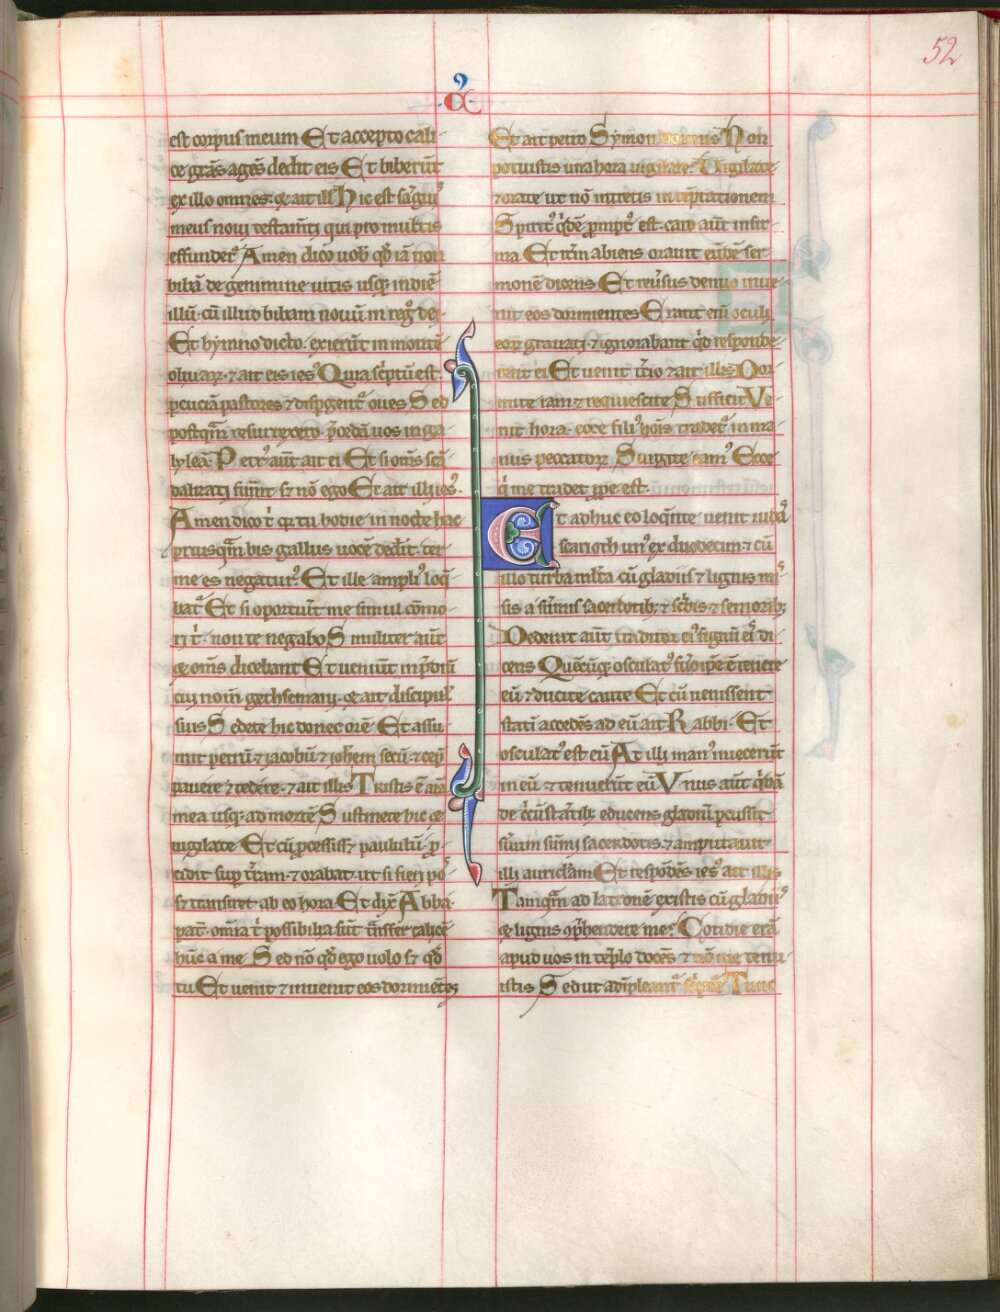 52
est corpus meum Et accepto cali-
ce grãs agẽs dedit eis Et biberũt
ex illo omnes: ⁊ ait ill' Hic est sãguis
meus noui testamti qui pro multis
effundet᷑ Amen dico uob' qð iã non
bibã de genimine uitis usq; in diẽ
illũ: cũ illud bibam nouũ in reg° dei-
Et hymno dicto. exierũt in montẽ
oliuaꝝ. ⁊ ait eis ies' Quia sc̃ptũ est.
ꝑcuciã pastorẽ ⁊ disꝑgent᷑ oues Sed
postq̃m resurrexero. p̃cedã uos in ga-
lyleã. Petr' aũt ait ei Et si om̃s scã-
dalizati fuerĩt sȝ nõ ego Et ait illi ies'.
Amen dico t' qȝ tu hodie in nocte hac
priusq̃m bis gallus uocẽ dedit. ter
me es negatur' Et ille ampli' loq̃-
bat᷑ Et si oportuit me simul cõmo-
ri t'. non te negabo Similiter aũt
⁊ om̃s dicebant Et ueniũt in p̃diũ
cui nom̃ gethsemani. ⁊ ait discipul'
suis Sedete hic donec orẽ Et assu-
mit petrũ ⁊ iacobũ ⁊ ioh'em secũ ⁊ cep̃
pauere ⁊ tedere. ⁊ ait illis Tristis ẽ aĩa
mea usq; ad mortẽ Sustinete hic ⁊
uigilate Et cũ ꝓcessiss; paululũ ꝓ-
cidit suꝑ t̃ram. ⁊ orabat. ut si fieri pos-
sȝ transiret ab eo hora Et dix̃ Abba
pat̃. omĩa t' possibilia sũt t̃nsfer calicẽ
hũc a me Sed nõ qð ego uolo sȝ qð
tu Et uenit ⁊ inuenit eos dormiẽtes
Et ait petro Symon dormis Non
potuistis una hora uigilare? Uigilate
⁊ orate ut nõ intretis in tẽptationem
Spirit' q̃dẽ prompt' est. caro aũt infir-
ma Et itm̃ abiens orauit eũdẽ ser-
monẽ dicens Et reũsus denuo inue-
nit eos dormientes Erant eñi oculi
eoꝝ grauati. ⁊ ignorabant qͥd responde-
rent ei Et uenit t'cio ⁊ ait illis Dor-
mite iam ⁊ requiescite Sufficit Ve-
nit hora. ecce fili' hoĩs tradet᷑ in ma-
nus peccatoꝝ Surgite eam' Ecce
q̃ me tradet ꝓpe est.
Et adhuc eo loq̃nte uenit iudas
scarioth un' ex duodecim. ⁊ cũ
illo turba mlta cũ gladiis ⁊ lignis mis-
sis a sũmis sacerdotib; ⁊ sc̃bis ⁊ seniorib;
Dederat aũt traditor ei' signũ eis di-
cens Quẽcũq; osculat' fũo ipse ẽ tenete
eũ. ⁊ ducite caute Et cũ uenissent
statĩ accedẽs ad eũ ait Rabbi. Et
osculat' est eũ At illi man' iniecerũt
in eũ. ⁊ tenuerũt eũ Vnus aũt q̃dã
de c̃cũstãtib; educens gladiũ ꝑcussit
seruũm sũmi sacerdotis. ⁊ amputauit
illi auriclam Et respõdẽs ies' ait illis
Tamq̃m ad latronẽ existis cũ gladiis
⁊ lignis cõp̃hendere me? Cotidie erã
apud uos in tẽplo docẽs ⁊ nõ me tenu-
istis Sed ut adĩpleant᷑ sc̃pt'e Tunc